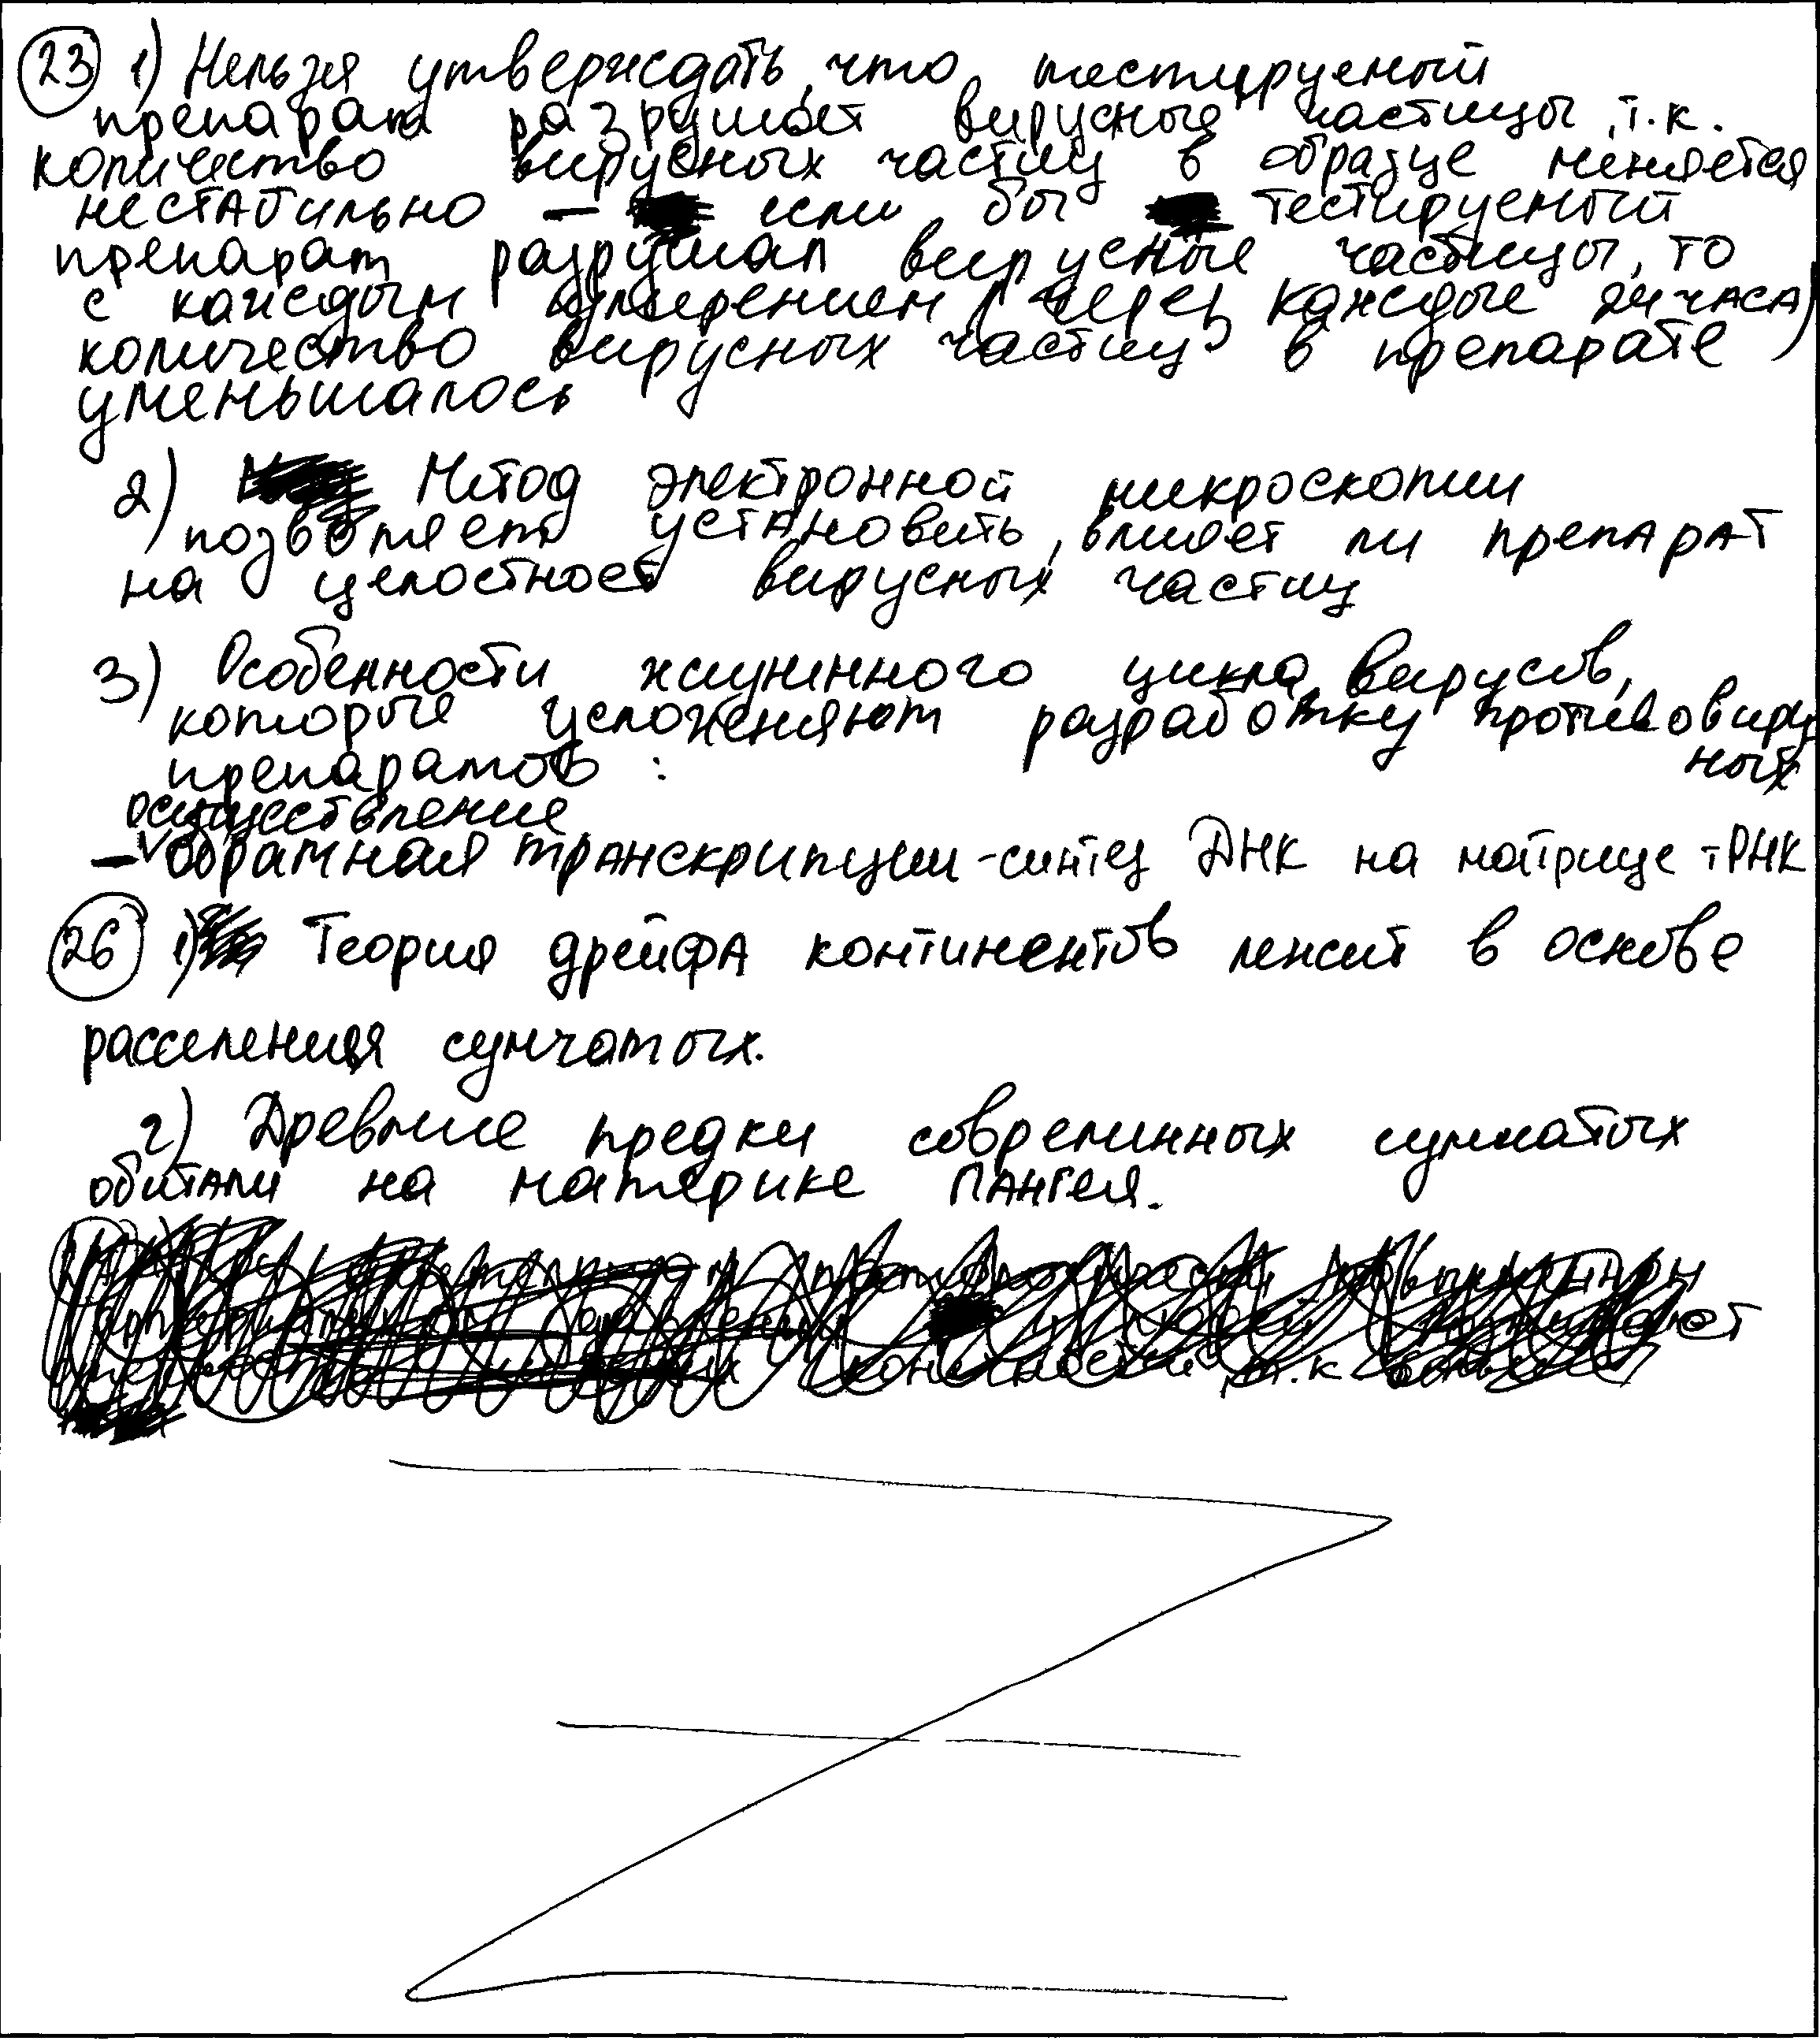 23 1) Нельзя утверждать, что тестируемый
препарат разрушает вирусные частицы, т.к.
количество вирусных частиц в образце меняется
нестабильно – если бы тестируемый
препарат разрушал вирусные частицы, то
с каждым измерением (через каждые 24 часа)
количество вирусных частиц в препарате
уменьшалось
2) Метод электронной микроскопии
позволяет установить, влияет ли препарат
на целостность вирусных частиц
3) Особенности жизненного цикла вирусов,
которые усложняют разработку противовирусных
препаратов:
осуществление
– обратная транскрипции - синтез ДНК на матрице тРНК
26 1) Теория дрейфа континентов лежит в основе
расселения сумчатых.
2) Древние предки современных сумчатых
обитали на материке Пангея.